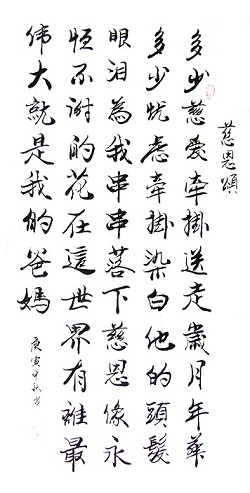 慈恩頌
多少慈爱牵掛送走歲月年華
多少忧虑牵掛染白他的頭髮
眼泪為我串串落下慈恩像永
恒不谢的花在這世界有誰最
伟大就是我的爸媽
庚寅中秋书